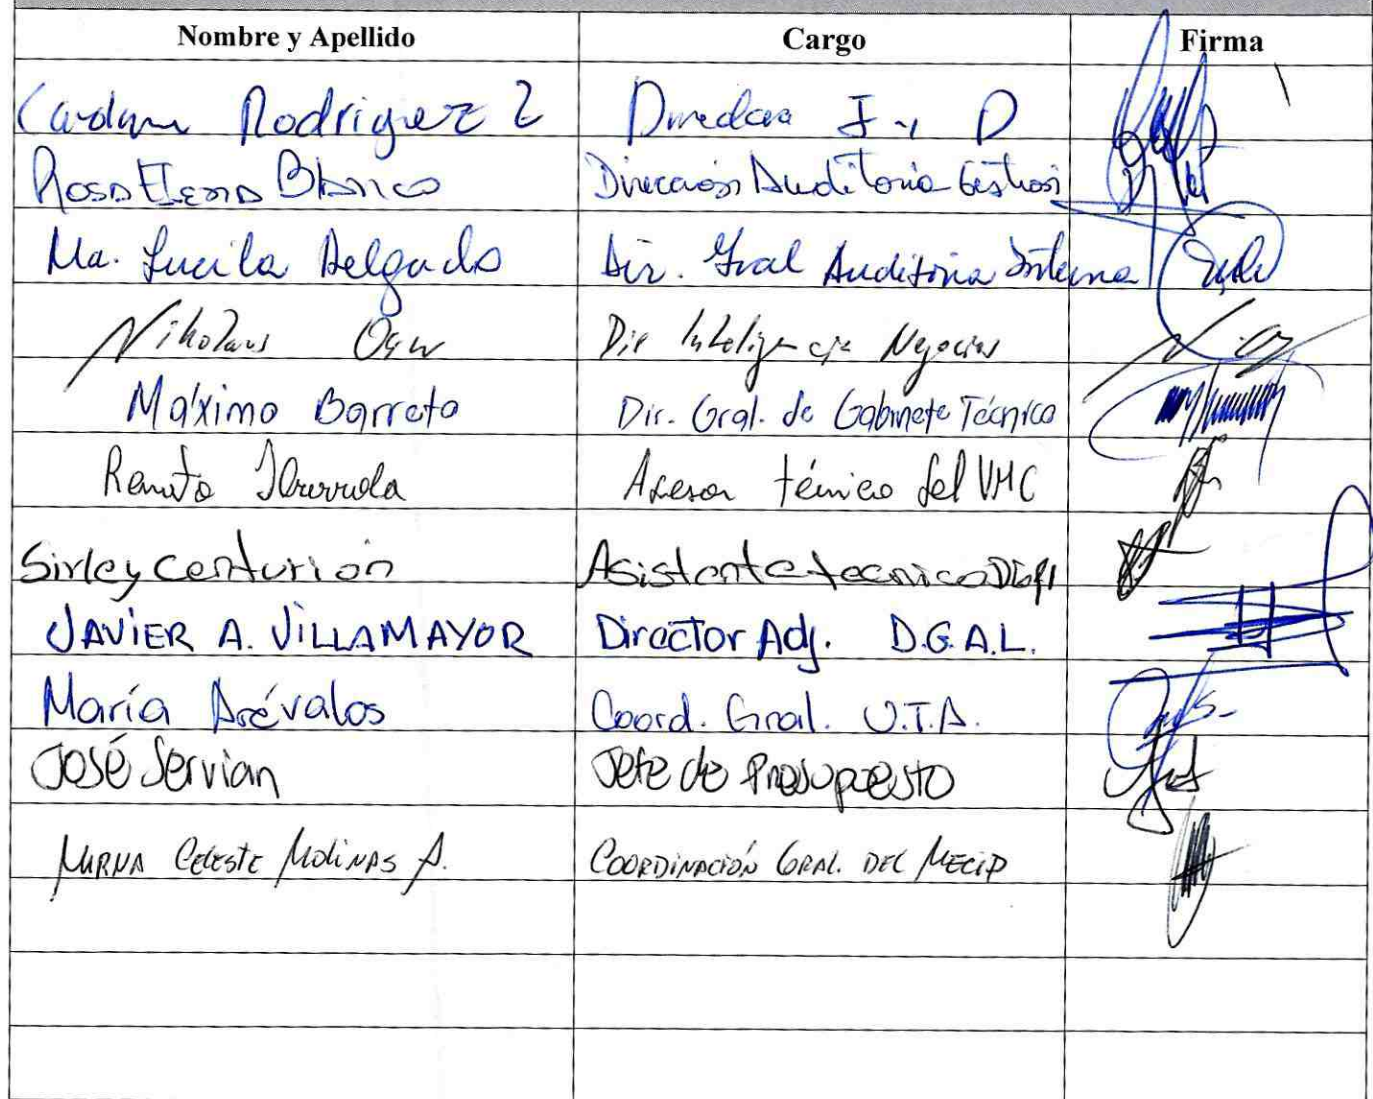 Nombre y Apellido Cargo Firma
Rodriguez Z Directora F y D
Rosa Elena Blanco Dirección Auditoria Gestión
Ma. Lucila Delgado Dir. Gral Auditoria Interna
Nikolaus Dir Inteligencia Negocios
Máximo Barreto Dir. Gral. de Gabinete Técnico
Renato Asesor técnico del VMC
Sirley Centurión Asistente tecnico
JAVIER A. VILLAMAYOR Director Adj. D.G.A.L.
María Arévalos Coord. Gral. U.T.A.
José Servian Jefe de Presupuesto
MIRNA CELESTE MOLINAS A. COORDINACIÓN GRAL. DEL MECIP